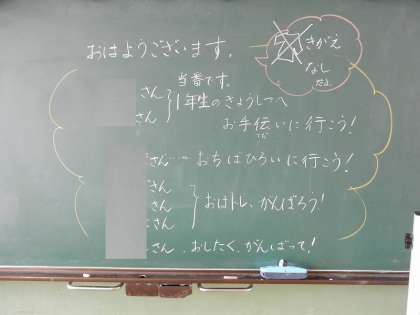 おはようございます。
きがえ
なし
だよ
当番です。
さん
さん
1年生のきょうしつへ
お手伝いに行こう!
だ
さん…おちばひろいに行こう!
さん
さん
さん
おはトレ、がんばろう!
さん、おしたく、がんばって!